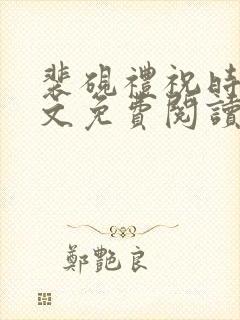 裴硯禮祝時
文免費閱讀
鄭艷良